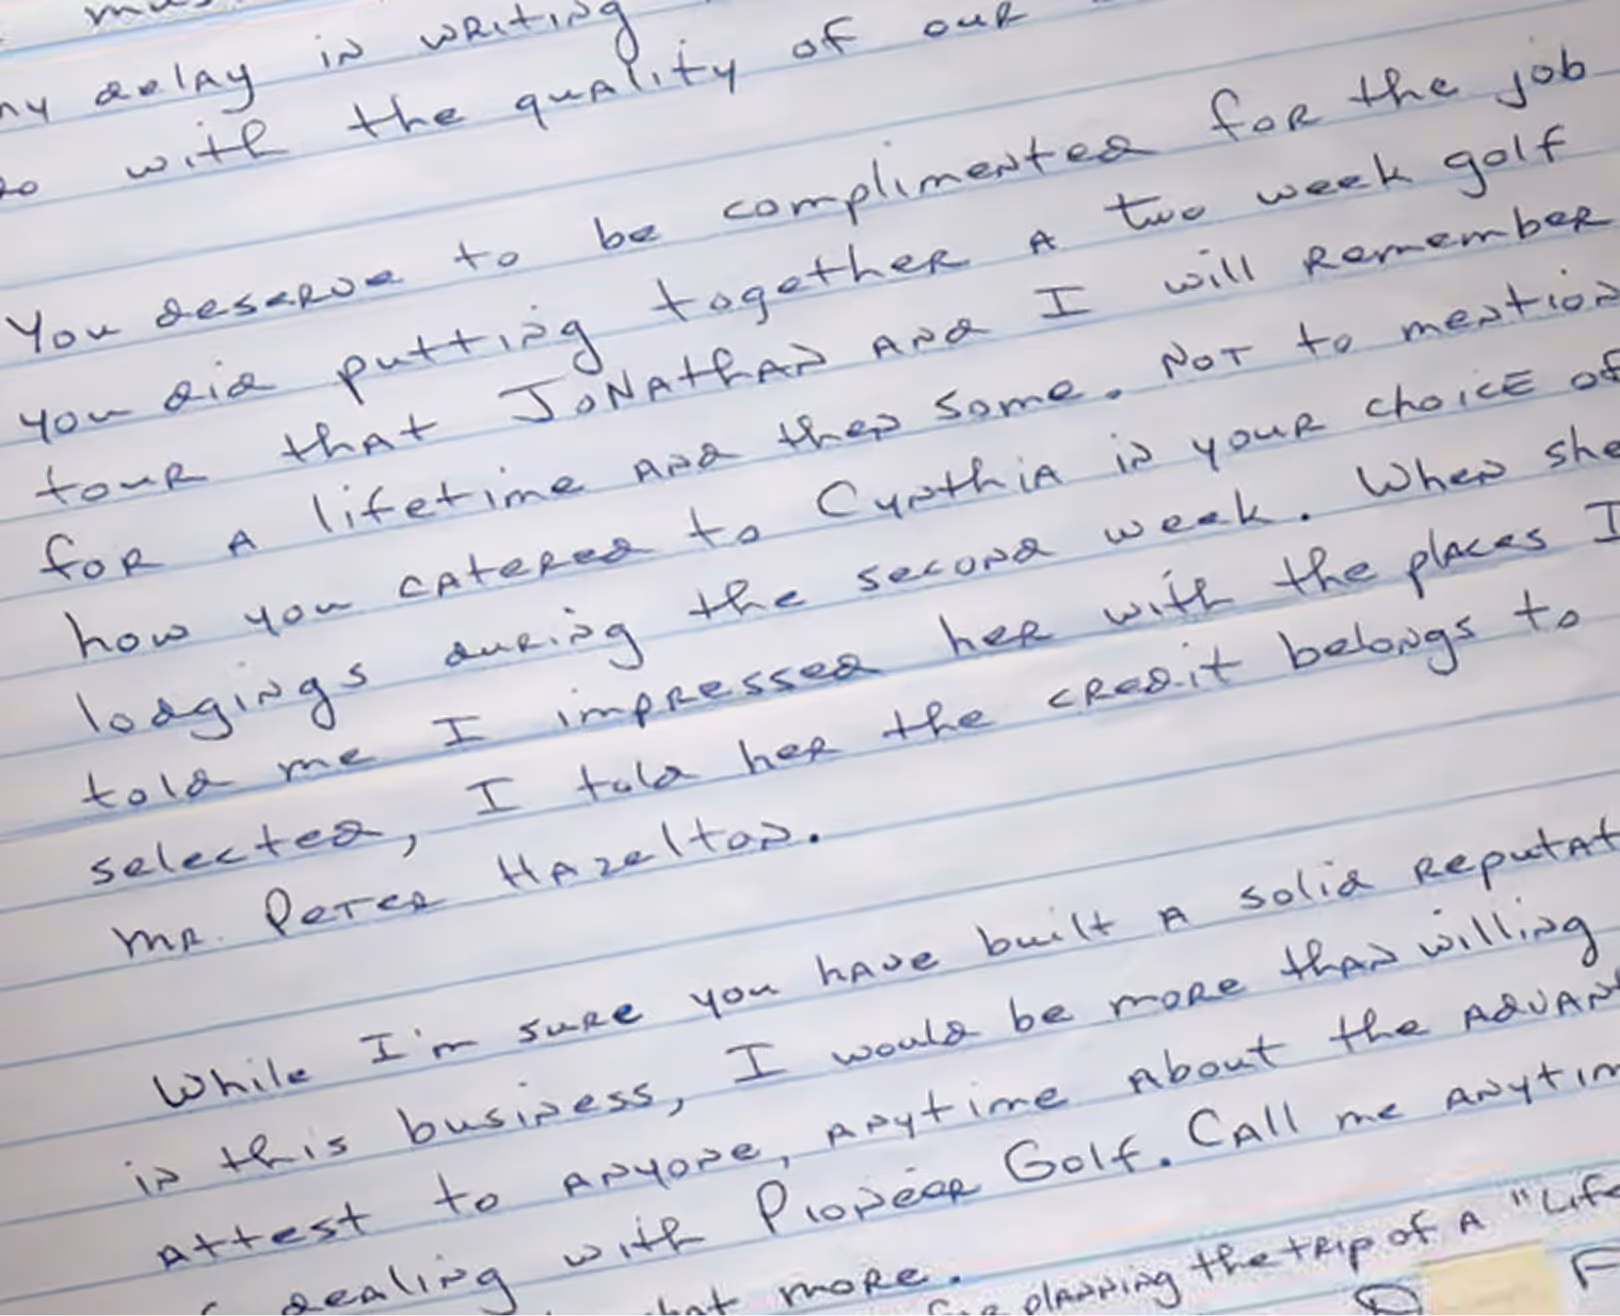 my delay in writing
do with the quality of our
You deserve to be complimented for the job
you did putting together A two week golf
tour that JoNAthAN AND I will Remember
for A lifetime AND then some. NOT to mention
how you CAtered to CynthiA in your choicE of
lodgings during the second week. When she
told me I impressed her with the places I
selected, I told her the credit belongs to
MR. PeTer HAzelton.
While I'm sure you hAve built A solid Reputat
in this business, I would be more thAN willing
Attest to ANyone, ANytime About the AdvAN
dealing with Pioneer Golf. CAll me ANytim
more.
planning the trip of A "Life